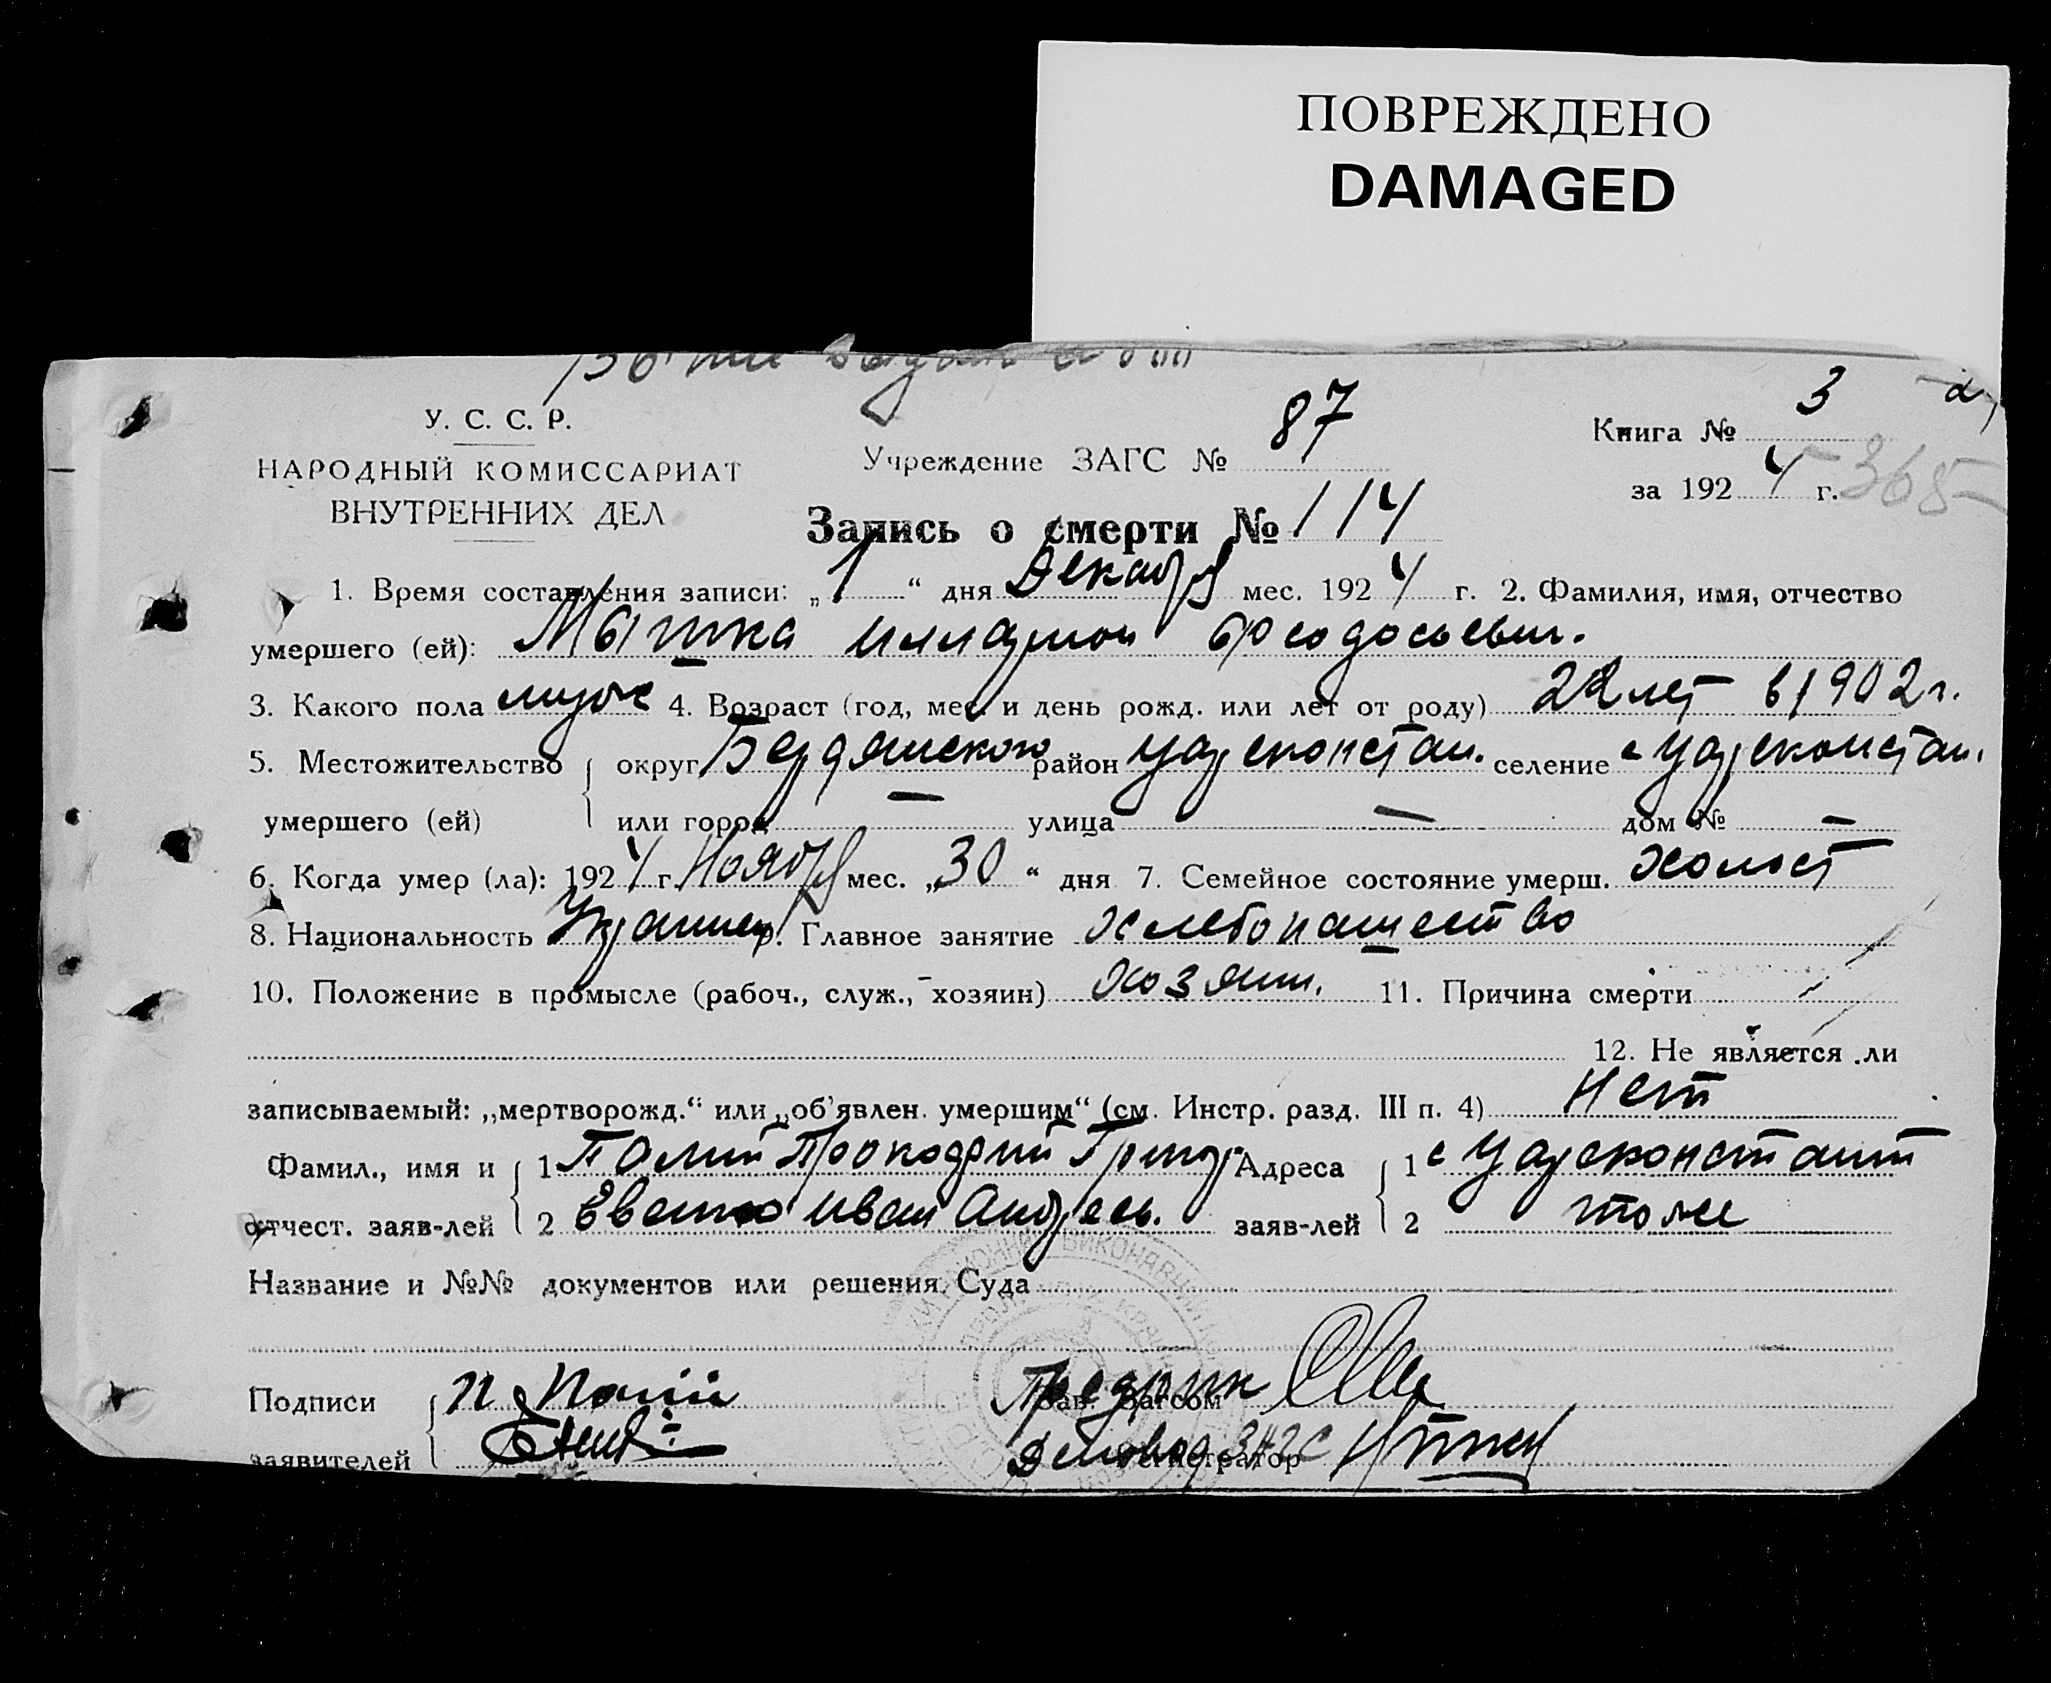 ПОВРЕЖДЕНО
DAMAGED
У. С. С. Р.
НАРОДНЫЙ КОМИССАРИАТ
ВНУТРЕННИХ ДЕЛ
Учреждение ЗАГС № 87
Книга № 3
за 1924 г. 365
Запись о смерти № 114
1. Время составления записи: „1“ дня Декабр мес. 1924 г. 2. Фамилия, имя, отчество
умершего (ей): Мытка Илларион Феодосьевич.
3. Какого пола муж 4. Возраст (год, мес. и день рожд. или лет от роду) 22 лет в 1902 г.
5. Местожительство округ Бердянского район Цареконстан. селение с Цареконстан.
умершего (ей) или город — улица — дом № —
6. Когда умер (ла): 1924 г. Ноябр мес. „30“ дня 7. Семейное состояние умерш. Холост
8. Национальность Украинец 9. Главное занятие Хлебопашество
10. Положение в промысле (рабоч., служ., хозяин) Хозяин. 11. Причина смерти
12. Не является ли
записываемый: „мертворожд.“ или „об'явлен. умершим“ (см. Инстр. разд. III п. 4) Нет
Фамил., имя и 1 Палий Прокофий Григор Адреса 1 с Цареконстант
отчест. заяв-лей 2 Евенко Иван Андреев. заяв-лей 2 тоже
Название и №№ документов или решения Суда
Подписи П Палій Предрик Зав. Загсом
заявителей Деловод ЗАГС Регистратор